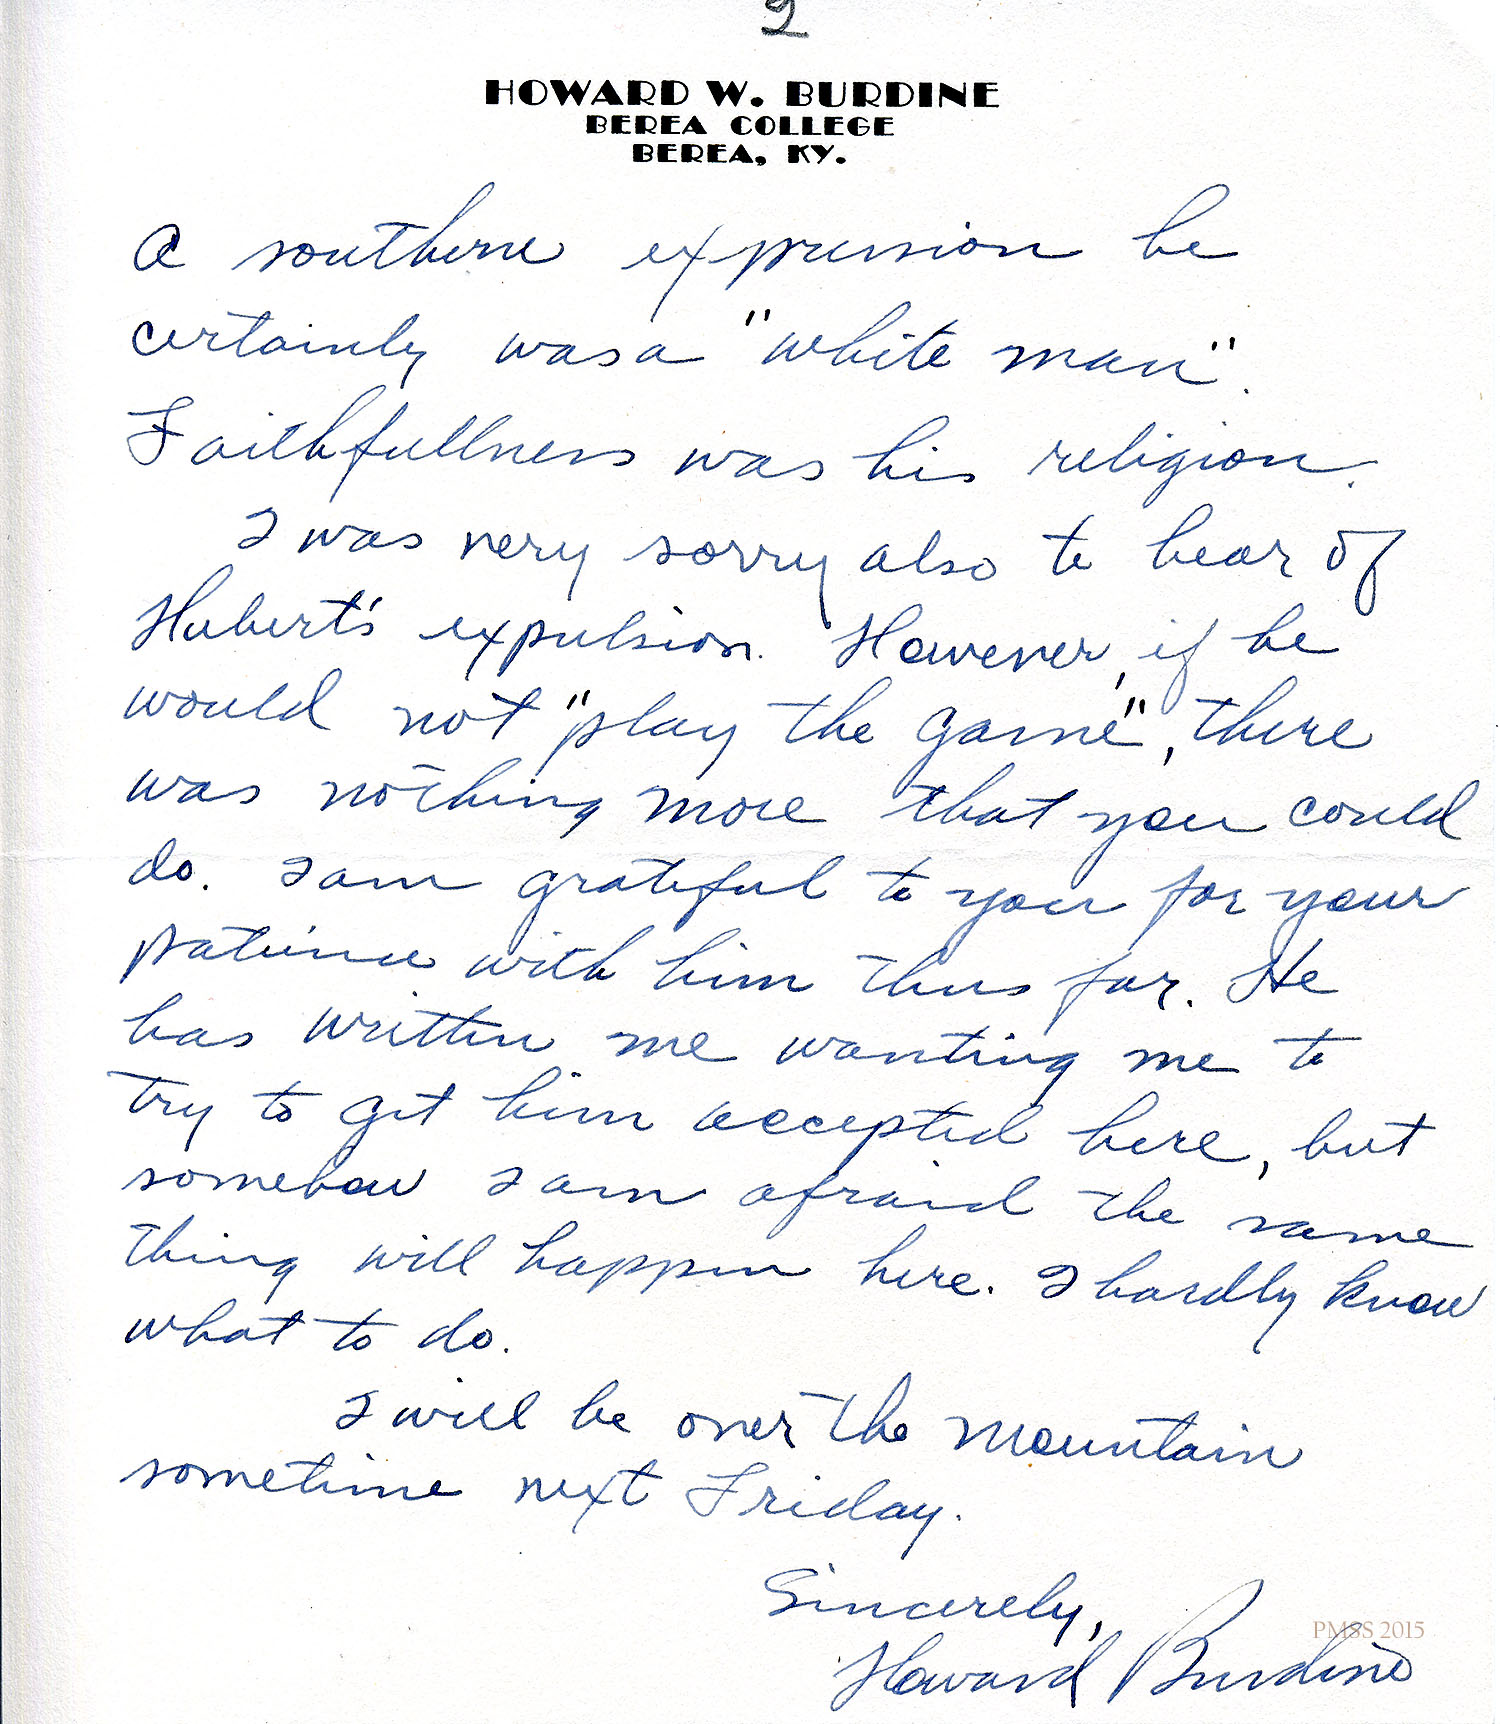 2
HOWARD W. BURDINE
BEREA COLLEGE
BEREA, KY.
a southern expression he
certainly was a "white man".
Faithfullness was his religion.
I was very sorry also to hear of
Hubert's expulsion. However, if he
would not "play the game", there
was nothing more that you could
do. I am grateful to you for your
patience with him thus far. He
has written me wanting me to
try to get him accepted here, but
somehow I am afraid the same
thing will happen here. I hardly know
what to do.
I will be over the mountain
sometime next Friday.
Sincerely,
Howard Burdine
PMSS 2015